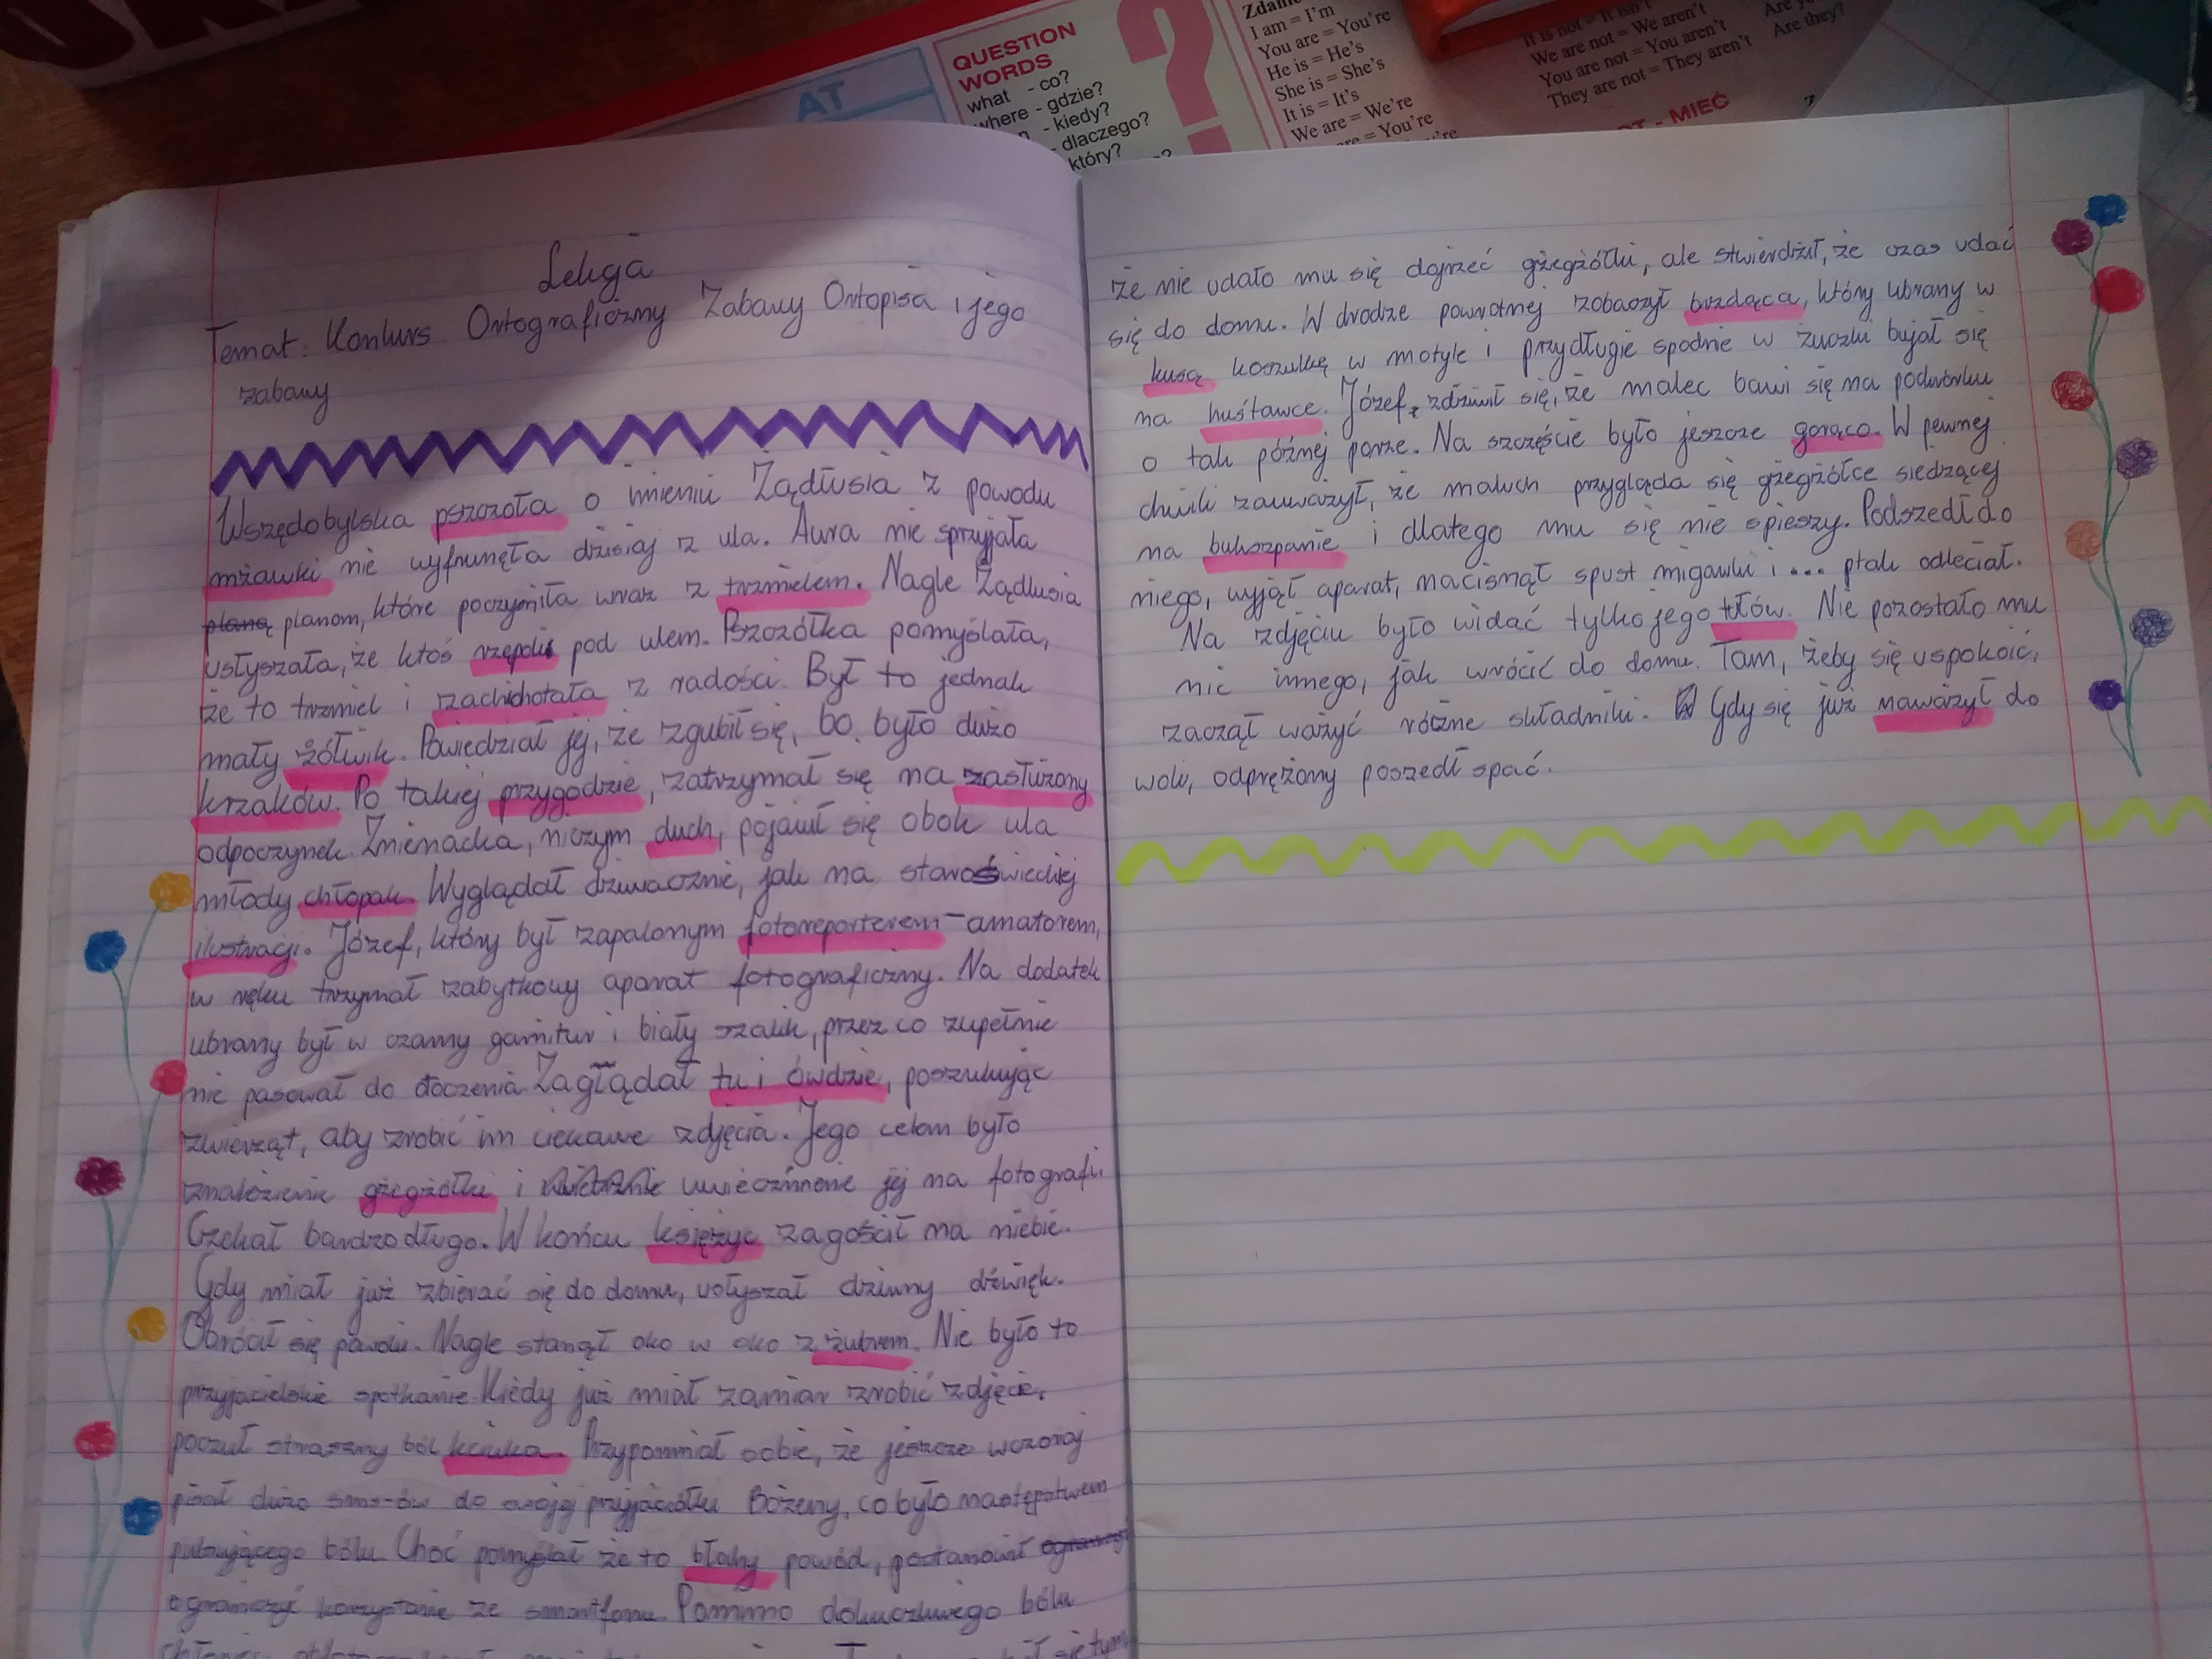 AT
QUESTION
WORDS
what - co?
where - gdzie?
- kiedy?
- dlaczego?
który?
?
I am = I'm
You are = You're
He is = He's
She is = She's
It is = It's
We are = We're
are = You're
It is not = It isn't
We are not = We aren't
You are not = You aren't
They are not = They aren't
Are they?
- MIEĆ
Lekcja
Temat: Konkurs Ortograficzny Zabawy Ortopisa i jego
zabawy
Wszędobylska pszczoła o imieniu Żądłusia z powodu
mżawki nie wyfrunęła dzisiaj z ula. Aura nie sprzyjała
planom, które poczyniła wraz z trzmielem. Nagle Żądłusia
usłyszała, że ktoś rzępolił pod ulem. Pszczółka pomyślała,
że to trzmiel i zachichotała z radości. Był to jednak
mały żółwik. Powiedział jej, że zgubił się, bo było dużo
krzaków. Po takiej przygodzie, zatrzymał się na zasłużony
odpoczynek. Znienacka, niczym duch, pojawił się obok ula
młody chłopak. Wyglądał dziwacznie, jak na staroświeckiej
ilustracji. Józef, który był zapalonym fotoreporterem-amatorem,
w ręku trzymał zabytkowy aparat fotograficzny. Na dodatek
ubrany był w czarny garnitur i biały szalik, przez co zupełnie
nie pasował do otoczenia. Zaglądał tu i ówdzie, poszukując
zwierząt, aby zrobić im ciekawe zdjęcia. Jego celem było
znalezienie gżegżółki i uwiecznienie jej na fotografi.
Czekał bardzo długo. W końcu księżyc zagościł na niebie.
Gdy miał już zbierać się do domu, usłyszał dziwny dźwięk.
Obrócił się powoli. Nagle stanął oko w oko z żubrem. Nie było to
przyjacielskie spotkanie. Kiedy już miał zamiar zrobić zdjęcie,
poczuł straszny ból kciuka. Przypomniał sobie, że jeszcze wczoraj
pisał dużo sms-ów do swojej przyjaciółki Bożeny, co było następstwem
pulsującego bólu. Choć pomyślał że to błahy powód, postanowił
ograniczyć korzystanie ze smartfonu. Pomimo dokuczliwego bólu
się tym
że nie udało mu się dojrzeć gżegżółki, ale stwierdził, że czas udać
się do domu. W drodze powrotnej zobaczył brzdąca, który ubrany w
kusą koszulkę w motyle i przydługie spodnie w żuczki bujał się
na huśtawce. Józef zdziwił się, że malec bawi się na podwórku
o tak późnej porze. Na szczęście było jeszcze gorąco. W pewnej
chwili zauważył, że maluch przygląda się gżegżółce siedzącej
na bukszpanie i dlatego mu się nie spieszy. Podszedł do
niego, wyjął aparat, nacisnął spust migawki i... ptak odleciał.
Na zdjęciu było widać tylko jego tułów. Nie pozostało mu
nic innego, jak wrócić do domu. Tam, żeby się uspokoić,
zaczął ważyć różne składniki. Gdy się już naważył do
woli, odprężony poszedł spać.